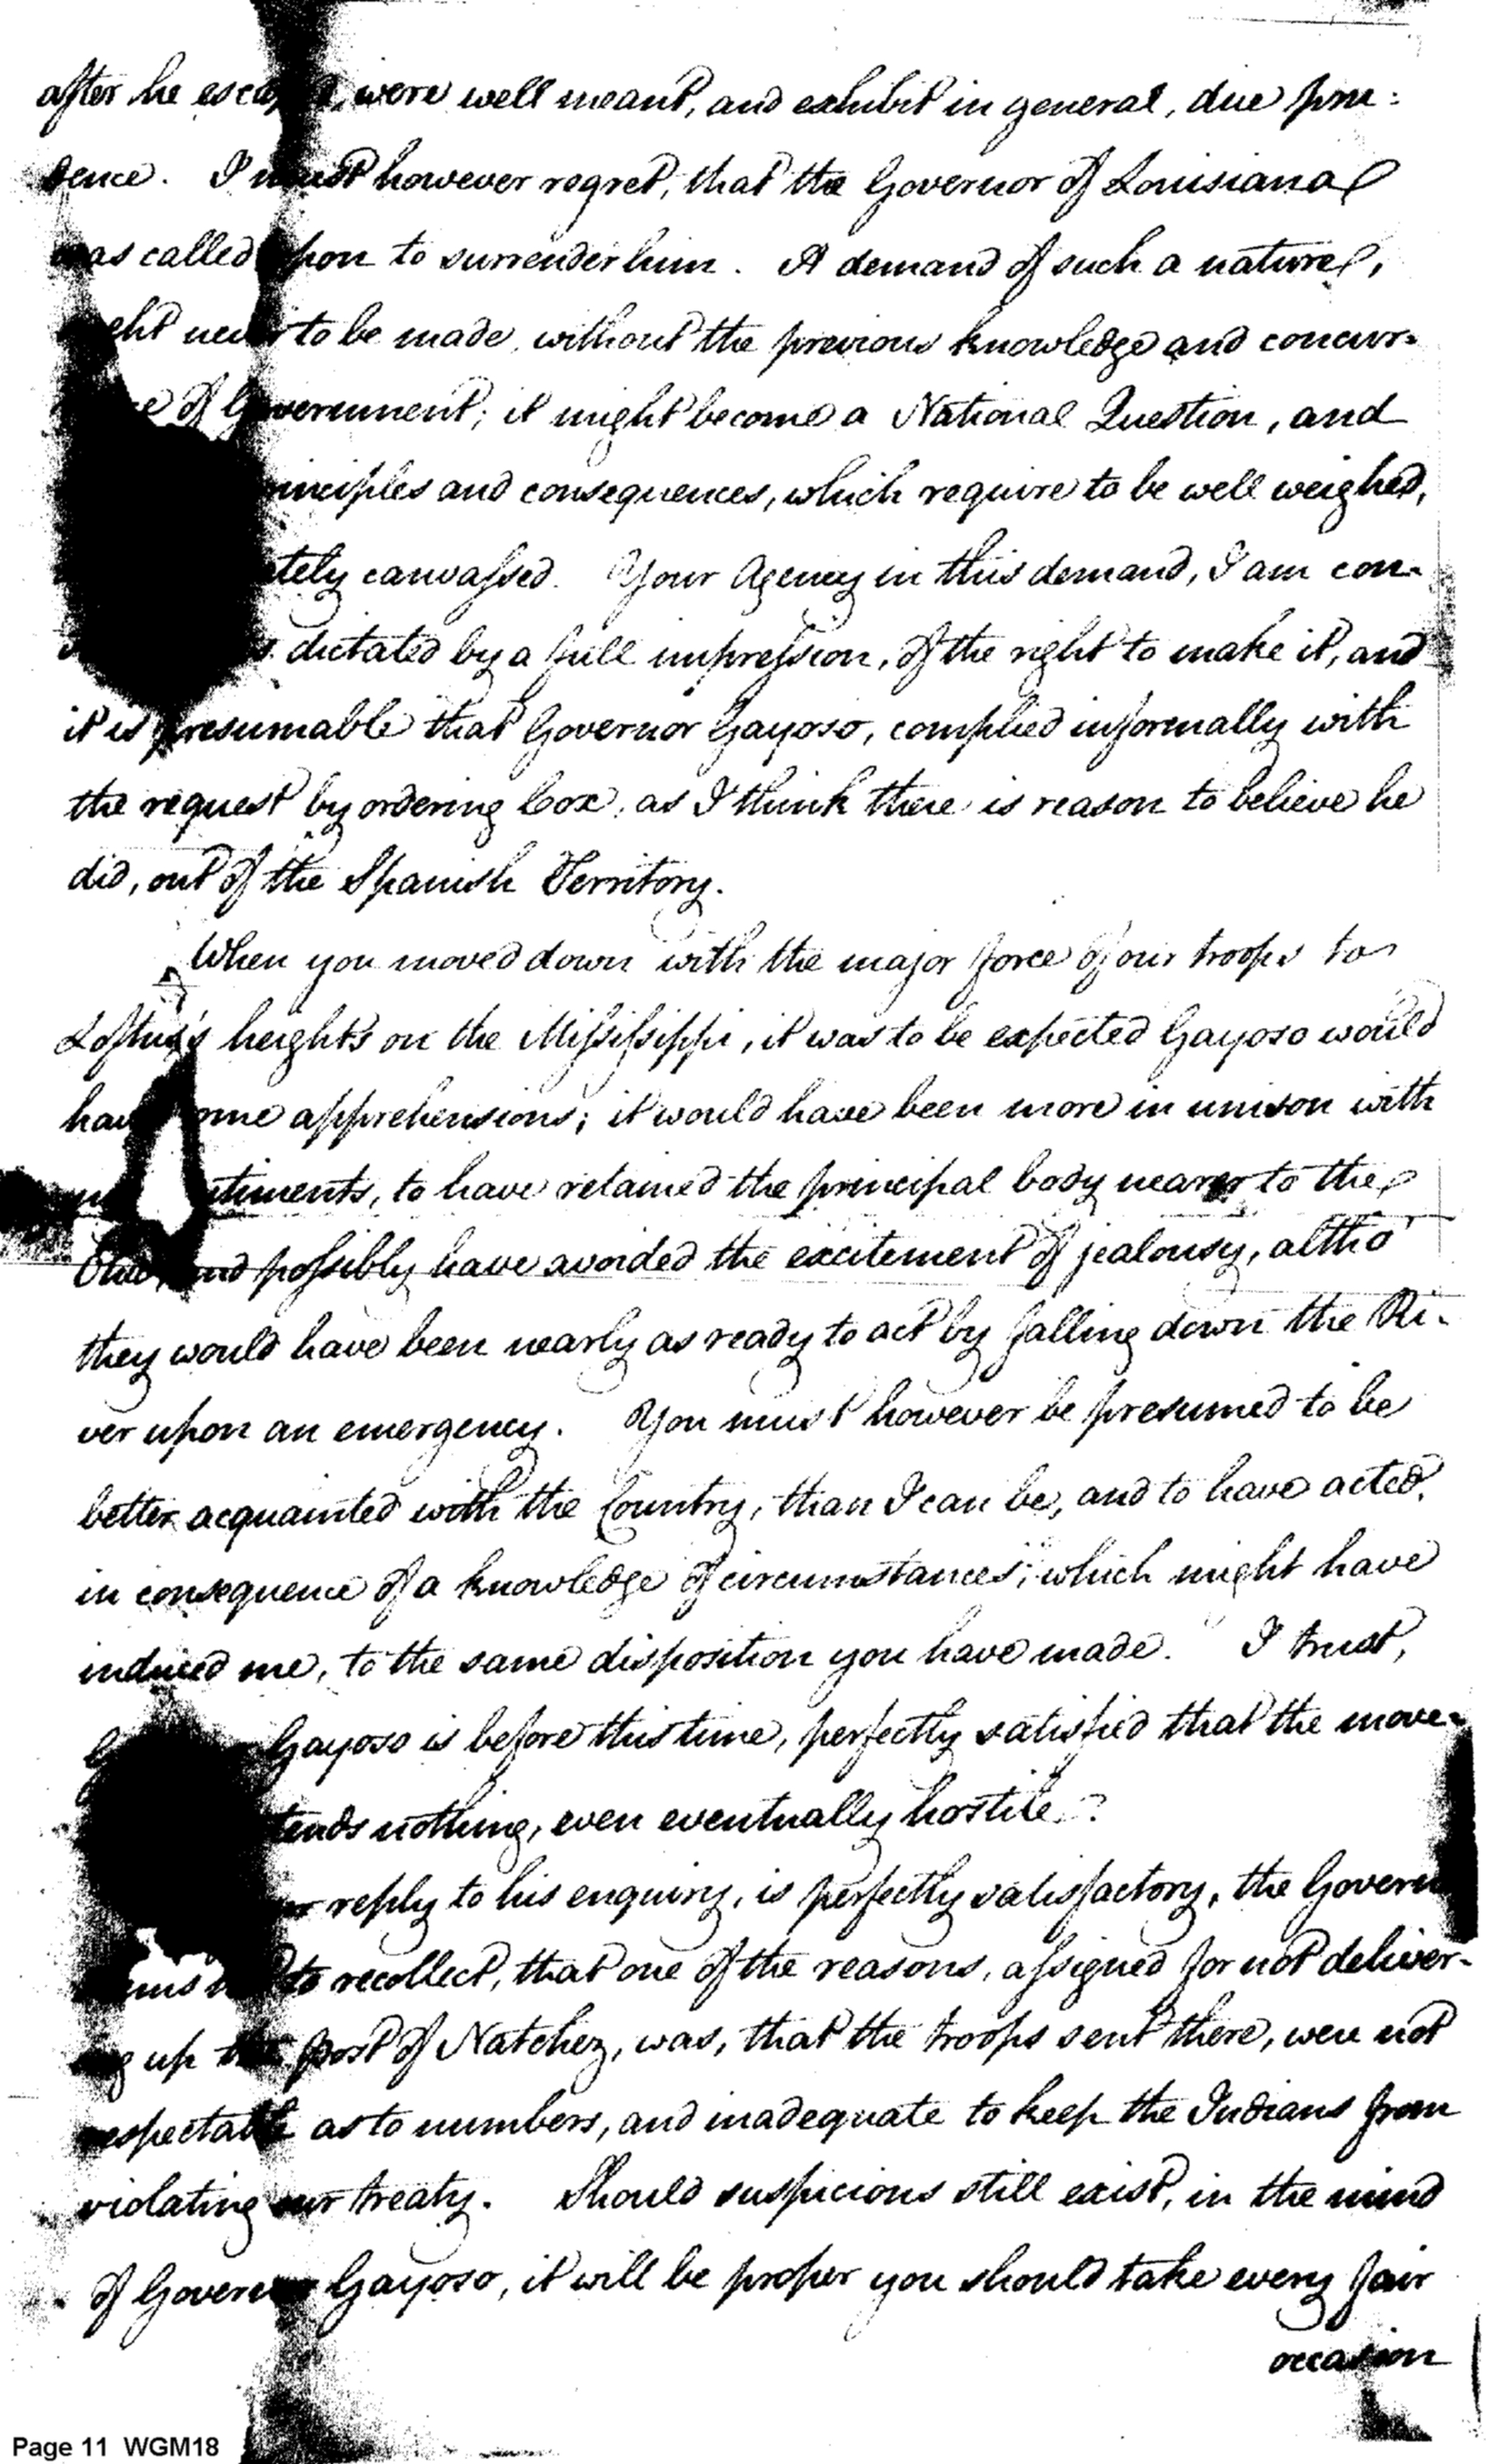 after he were well meant, and exhibit in general, due pru=
dence. I must however regret, that the Governor of Louisiana
was called upon to surrender him. A demand of such a nature,
never to be made, without the previous knowledge and concur-
of Government; it might become a National Question, and
and consequences, which require to be well weighed,
canvassed. Your Agency in this demand, I am con-
dictated by a full impression, of the right to make it, and
it is presumable that Governor Gayoso, complied informally with
the request by ordering Cox, as I think there is reason to believe he
did, out of the Spanish Territory.
When you moved down with the major force of our troops to
Loftus's heights on the Mississippi, it was to be expected Gayoso would
have some apprehensions; it would have been more in unison with
to have retained the principal body nearer to the
and possibly have avoided the excitement of jealousy, altho'
they would have been nearly as ready to act by falling down the Ri-
ver upon an emergency. You must however be presumed to be
better acquainted with the Country, than I can be, and to have acted,
in consequence of a knowledge of circumstances, which might have
induced me, to the same disposition you have made. I trust,
Gayoso is before this time, perfectly satisfied that the move-
nothing, even eventually hostile.
reply to his enquiry, is perfectly satisfactory, the
to recollect, that one of the reasons, assigned for not deliver-
ing up the post of Natchez, was, that the troops sent there, were not
respectable as to numbers, and inadequate to keep the Indians from
violating our treaty. Should suspicions still exist, in the mind
of Governor Gayoso, it will be proper you should take every fair
occasion
Page 11 WGM18